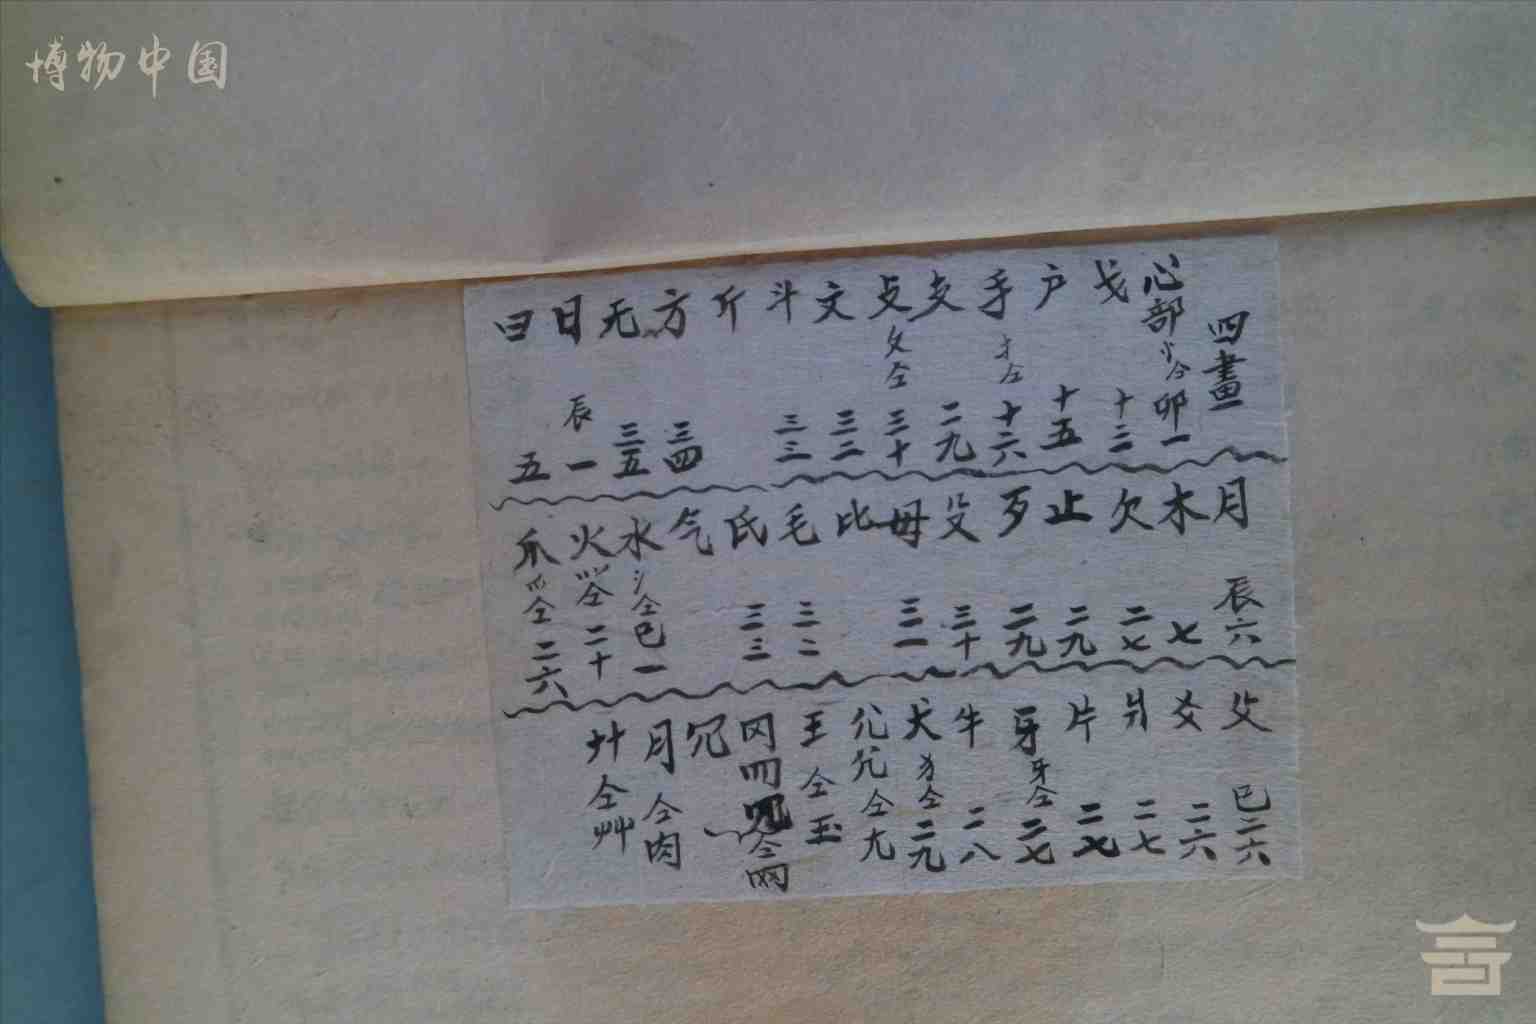 博物中国
四畫
心部忄仝卯一
戈十三
户十五
手扌仝十六
支二九
攴攵仝三十
文三二
斗三三
斤
方三四
无三五
日辰一
曰五
月辰六
木七
欠二七
止二九
歹二九
殳三十
毋三一
比
毛三二
氏三三
气
水氵仝巳一
火灬仝二十
爪爫仝二六
父巳二六
爻二六
爿二七
片二七
牙牙仝二七
牛二八
犬犭仝二九
尣兊仝尢
王仝玉
冈罒仝网
冗
月仝肉
艹仝艸